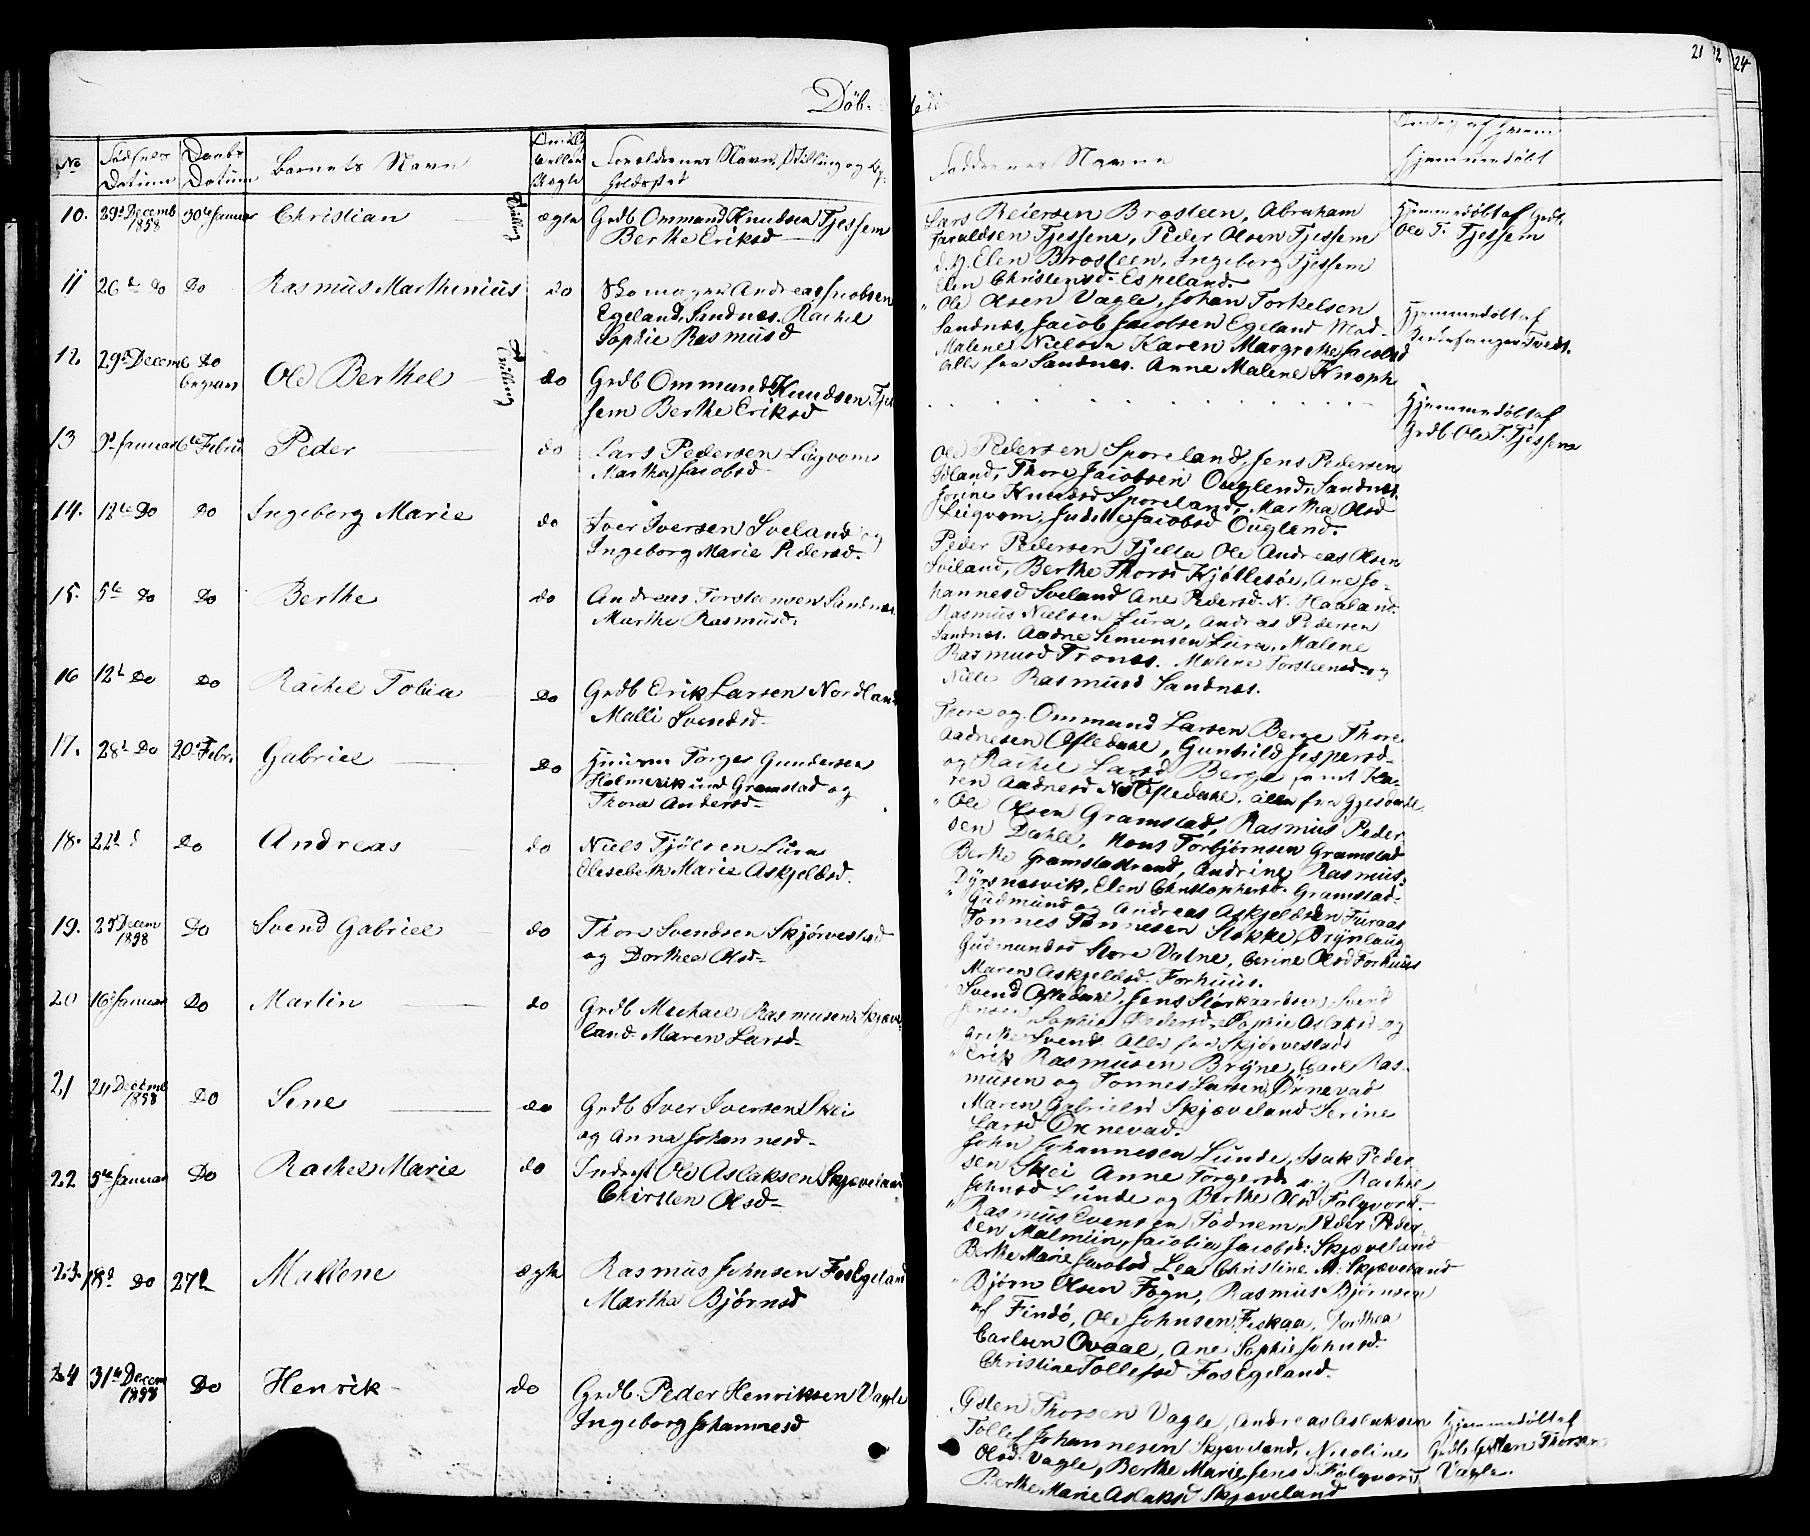 Døb
21 22 24
No
Fødsels Datum
Daabs Datum
Barnets Navn
Om ægte eller uægte
Forældrenes Navn, Stilling og Opholdssted
Faddernes Navne
Hjemmedøbt
10. 29d Decemb 1858 30te Januar Christian Tvilling ægte Grdb Ommund Knudsen Tjessem
Berthe Eriksd
Lars Reiersen Brosteen, Abraham
Tjessem, Peder Olsen Tjessem
Elen Brosteen, Ingeborg Tjessem
Elen Christensd. Espeland.
Hjemmedøbt af Grdb.
Ole T. Tjessem
11 26de do Do Rasmus Marthinius do Skomager Andreas Jacobsen
Egeland, Sandnæs. Rachel
Sophie Rasmusd
Ole Olsen Vagle, Johan Torkelsen
Sandnæs, Jacob Jacobsen Egeland Mad.
Malene Nielsen Karen Margrethe Jacobsd
alle fra Sandnæs. Anne Malene Knoph
Hjemmedøbt af
12. 29d Decemb Do begravet Ole Berthel Tvilling do Grdb Ommund Knudsen Tjes
sem Berthe Eriksd
Hjemmedøbt af
Grdb Ole T. Tjessem
13 Januar 6te Febru Peder do Lars Pedersen Lygvom
Martha Jacobsd
Ole Pedersen Sporeland, Jens Pedersen
Thore Jacobsen Ougland, Sandnæs.
Knudsd Sporeland, Martha Olsd
Jacobsd Ougland.
14. 12te Do Do Ingeborg Marie do Iver Iversen Sveland og
Ingeborg Marie Pedersd.
Peder Pedersen Tjelta Ole Andreas Olsen
Sviland, Berthe Thorsd Kjøllesøe, Ane Jo-
hannesd Sveland Ane Pedersd. N. Haaland.
15. 5te Do Do Berthe do Andreas Torsteensen Sandnæs
Marthe Rasmusd.
Rasmus Nielsen Lura, Andreas Pedersen
Sandnæs. Aadne Simonsen Lura, Malene
Rasmusd Tronæs. Malene Torsteensd og
Rasmusd Sandnæs.
16 12t Do Do Rachel Tobia Do Grdb Erik Larsen Nordland
Malli Svendsd
Thore og Ommund Larsen Berge Thore
Aadnesen Ofledahl, Gunhild Jespersd
og Rachel Larsd Berge samt Ka-
ren Aadnesd N. Ofledahl. alle fra Gjesdahl.
17. 28d Do 20d Febr. Gabriel Do Huusm Torger Gundersen
Holmevik und Gramstad og
Thora Andersd
Ole Olsen Gramstad, Rasmus Peder
sen Dahle, Hans Torbjørnsen Gramstad
Berthe Gramstadstrand, Andrine Rasmus.
Dyrsnæsvik, Elen Christophersd. Gramstad
18. 22d Do Andreas do Niels Tjølsen Lura
Elesebeth Marie Askjelsd.
Gudmund og Andreas Askjelsen Furaas
Tønnes Tønnesen Stokke, Brynlaug
Gudmundsd Store Vatne, Cerine Olsd Forhuus
Maren Askjelsd. Forhuus.
19. 25 Decem 1858 Do Svend Gabriel do Thore Svendsen Skjørvestad
og Dorthea Olsd
Svend Ofledahl, Jens Storkaardsen. Svend
Jensen Sophie Pedersd, Sophie Aslaksd og
Svends. Alle fra Skjørvestad
20 16d Januar Do Martin do Grdb Mechael Rasmusen Skjæve
land Maren Larsd
Erik Rasmusen Bryne, Carl Ras-
musen og Tonnes Larsen Ørnevad
Maren Gabrielsd Skjæveland Serine
Larsd Ørnevad.
21 24 Decemb 1858 Do Sene do Grdb Iver Iversen Skei
og Anna Johannesd
John Johannesen Lunde, Isak Peder
sen Skei Anne Torgersd og Rachel
Johnsd Lunde og Berthe Olsd Folgvord.
22 5te Januar Do Rachel Marie do Inderst Ole Aslaksen Skjæveland
Chirsten Olsd
Rasmus Evensen Todnem, Peder Peder
sen Malmiin, Jacobia Jacobsd: Skjæveland
Berthe Marie Jacobsd Lea Christine M. Skjæveland
23. 18d Do 27d Mallene ægte Rasmus Johnsen Fosegeland
Martha Bjørnsd
Bjørn Olsen Fogn, Rasmus Bjørnsen
af Findø, Ole Johnsen Fiskaa, Dorthea
Carlsen Ovaal, Ane Sophie Johnsd.
Christine Tollefsd Fosegeland.
24 31te Decem 1858 Do Henrik do Grdb. Peder Henriksen Vagle
Ingeborg Johannesd
Gitlen Thorsen Vagle, Andreas Aslaksen
Tollef Johannesen Skjæveland, Nicoline
Olsd. Vagle, Berthe Marie Jensd Folgvord
Berthe Marie Aslaksd Skjæveland
Hjemmedøbt af
Grdb. Gitlen Thorsen
Vagle.